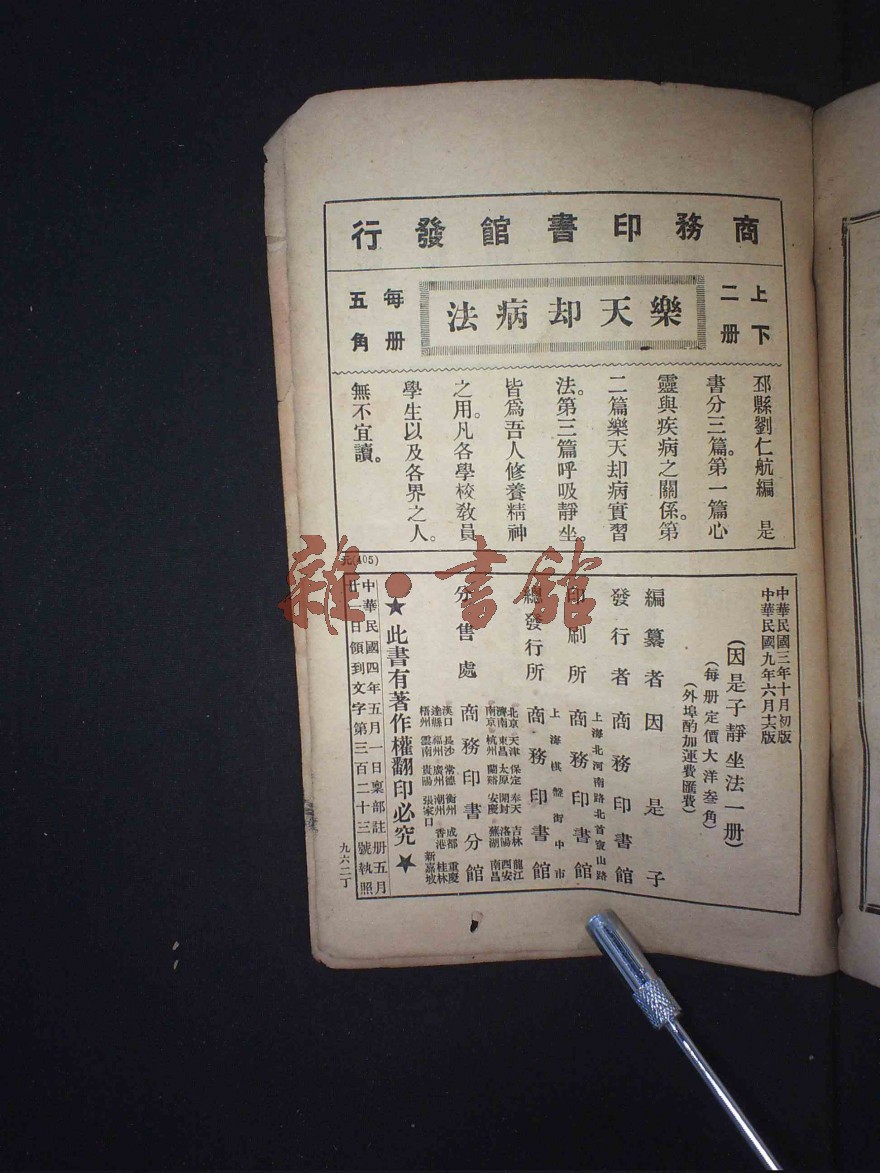 商務印書館發行
上下二册
樂天却病法
每册五角
邳縣劉仁航編　是
書分三篇。第一篇心
靈與疾病之關係。第
二篇樂天却病實習
法。第三篇呼吸靜坐。
皆爲吾人修養精神
之用。凡各學校教員
學生以及各界之人。
無不宜讀。
元(405)
中華民國三年十月初版
中華民國九年六月十六版
(因是子靜坐法一册)
(每册定價大洋叁角)
(外埠酌加運費匯費)
編纂者因是子
發行者商務印書館
上海北河南路北首寶山路
印刷所商務印書館
上海棋盤街中市
總發行所商務印書館
北京 天津 保定 奉天 吉林 龍江
濟南 東昌 太原 開封 洛陽 西安
南京 杭州 蘭谿 安慶 蕪湖 南昌
分售處商務印書分館
漢口 長沙 常德 衡州 成都 重慶
達縣 福州 廣州 潮州 香港 桂林
梧州 雲南 貴陽 張家口 新嘉坡
★此書有著作權翻印必究★
中華民國四年五月一日稟部註册五月
廿一日領到文字第三百二十三號執照
九六二丁
雜·書館